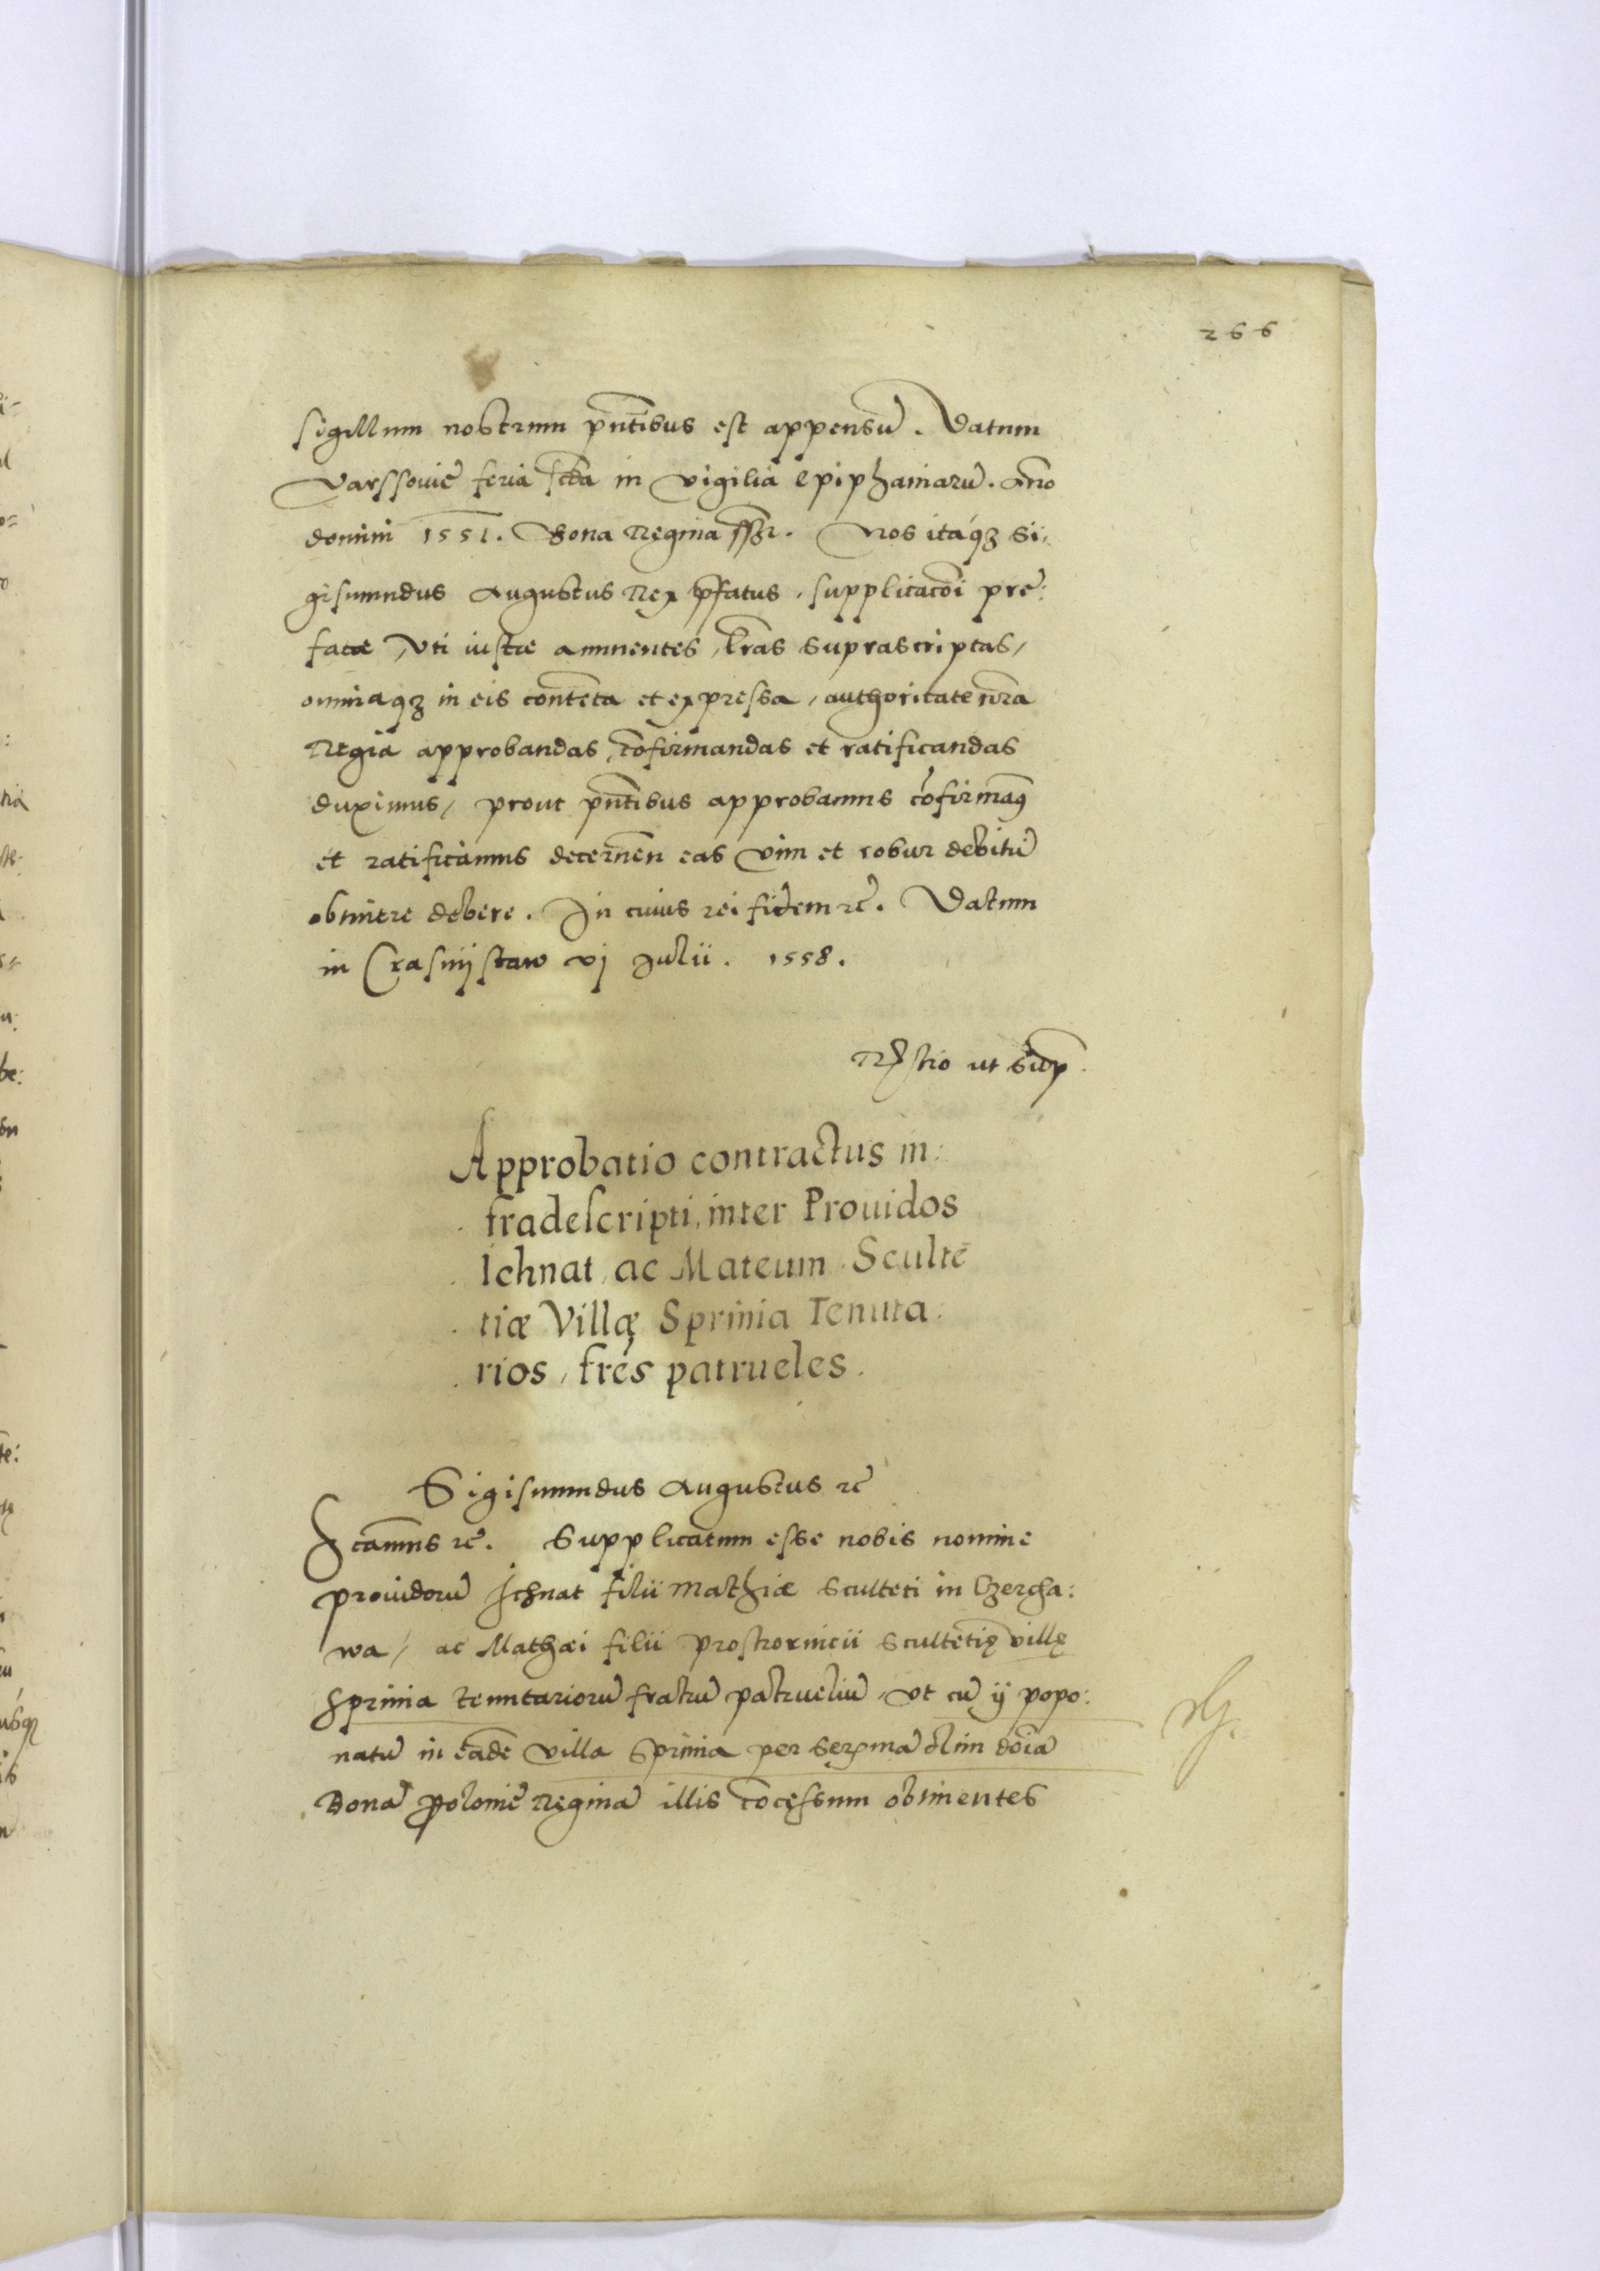 266
sigillum nostrum pñtibus est appensũ. Datum
Varssoviẽ feria scđa in vigilia Epiphaniarũ. Año
domini 1551. Bona Regina sszt. Nos itáqꝫ Si:
gismundus Augustus Rex p̃fatus, supplicatõi pre:
fatæ, vti iustæ annuentes, l̃ras suprascriptas,
omniaqꝫ in eis contẽta et expressa, authoritate nr̃a
Regia approbandas, cõfirmandas et ratificandas
duximus, prout pñtibus approbamus cõfirmamꝰ
et ratificamus decernen̄ eas vim et robur debitũ
obtinere debere. In cuius rei fidem ꝛc̃. Datum
in Crasnijstaw vj Julii. 1558.
R̃latio ut Supr̃
Approbatio contractus in:
fradescripti, inter Prouidos
Ichnat, ac Mateum Scultẽ
tiæ Villę Sprinia Tenuta:
rios, fr̃es patrueles.
Sigismundus Augustus ꝛc̃
Scamus ꝛc̃. Supplicatum esse nobis nomine
prouidorũ Ichnat filii Mathiæ Sculteti in Czercha:
wa, ac Mathæi filii Prostrornicii Scultetię villę
Sprinia tenutariorũ fratrũ patrueliũ, vt cũ ij popo:
natũ in eãdẽ villa Sprinia per Serẽmã olim doĩam
Bonã Poloniẽ Reginã illis cõcessum obtinentes